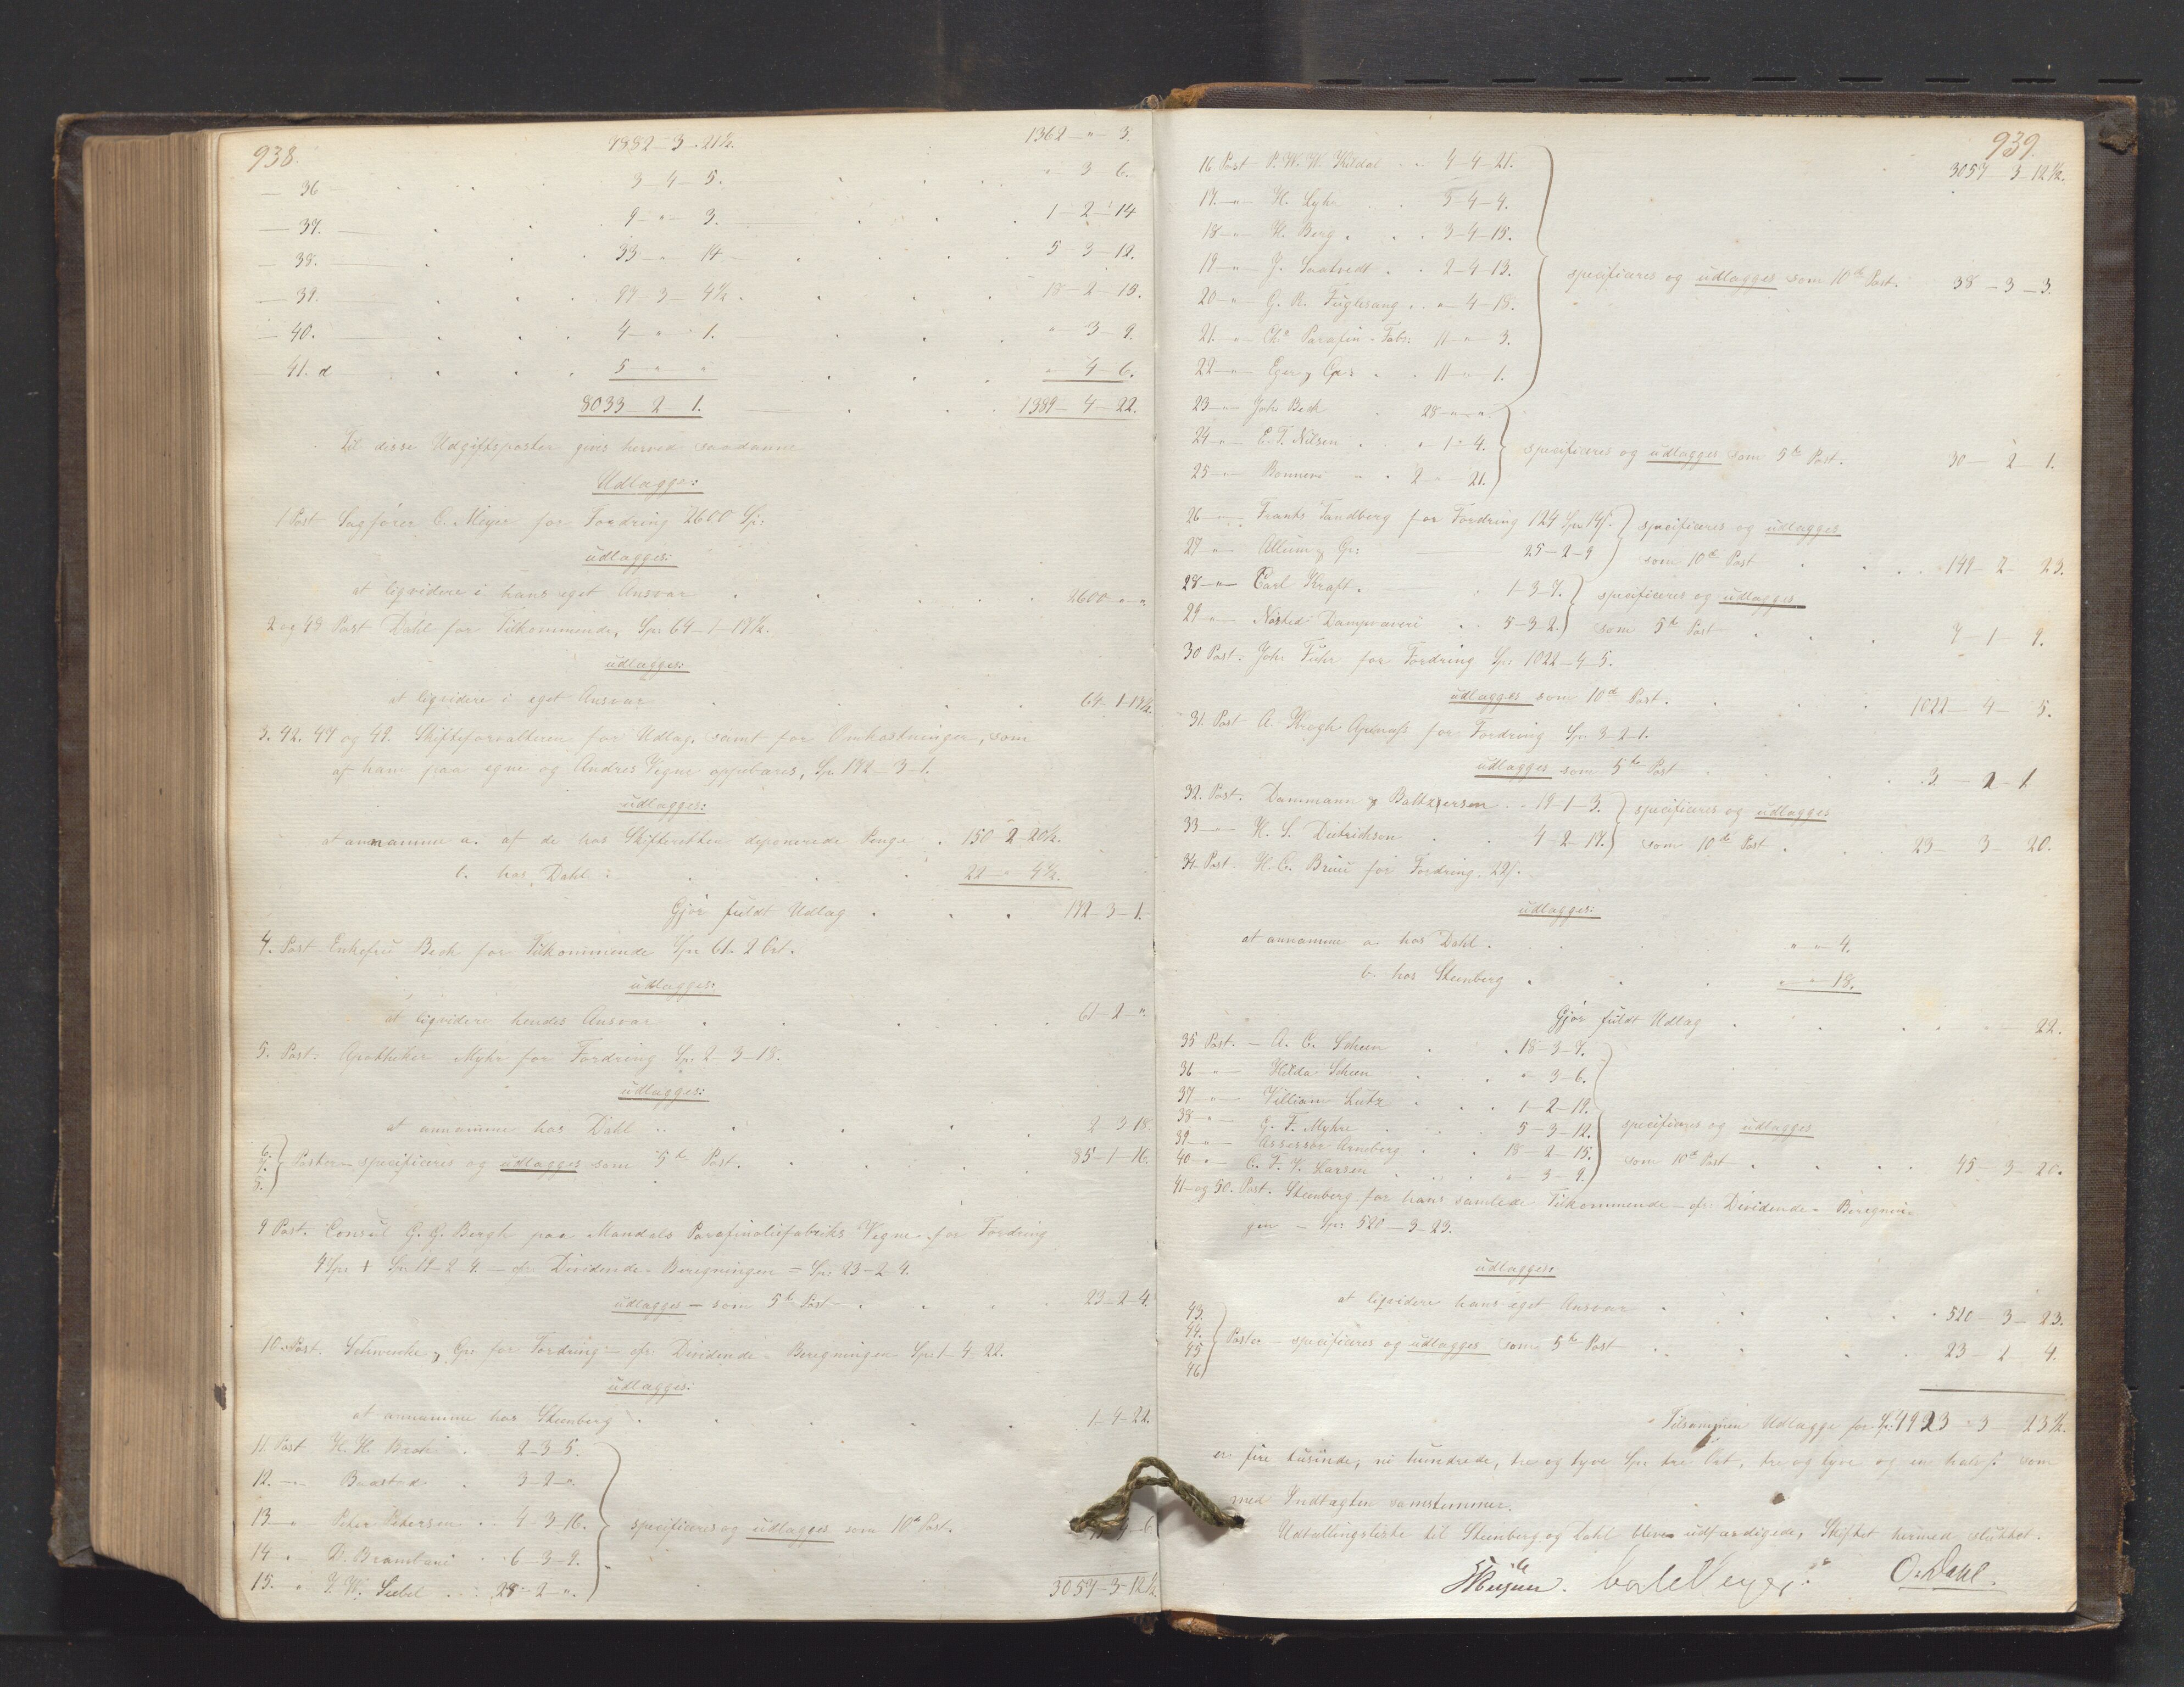 938.
7882-3-21½. 1362-"-3.
— 36 3-4-5. "-3-6.
— 37. 9-"-3. 1-2-14
— 38. 33-"-14 5-3-12.
— 39. 97-3-4½. 18-2-15.
— 40. 4-"-1. "-3-9.
— 41. d 5-"-" "-4-6.
8033-2-1. 1389-4-22.
Til disse Udgiftsposter gives herved saadanne
Udlægge:
1 Post Sagfører C. Meyer for Fordring 2600 Sp:
udlægges:
at liqvidere i hans eget Ansvar 2600-"-"
2 og 48 Post Dahl for Tilkommende, Spr 64-1-17½.
udlægges:
at liqvidere i eget Ansvar 64-1-17½.
3. 42. 47 og 49. Skifteforvalteren for Udlag, samt for Omkostninger, som
af ham paa egne og Andres Vegne oppebæres, Sp. 172-3-1.
udlægges:
at annamme a. af de hos Skifteretten deponerede Penge 150-2-20½.
b. hos Dahl 22-"-4½.
Gjør fuldt Udlag 172-3-1.
4. Post Enkefru Bech for Tilkommende Spr 61. 2 Ort.
udlægges:
at liqvidere hendes Ansvar 61-2-"
5. Post: Apotheker Myhr for Fordring Sp. 2-3-18.
udlægges:
at annamme hos Dahl 2-3-18
Poster – specificeres og udlægges som 5te Post. 85-1-16.
9 Post. Consul G. G. Bergh paa Mandals Parafinoliefabriks Vegne for Fordring
4 Spr + Spr 19-2-4. – cfr Dividende-Beregningen = Sp: 23-2-4.
udlægges – som 5te Post 23-2-4.
10. Post. Schwencke & Co for Fordring – cfr Dividende-Beregningen Spr 1-4-22.
udlægges:
at annamme hos Steenberg 1-4-22.
11. Post H. H. Bach 2-3-5.
12. — Baastad 3-2-"
13 " Peter Petersen 4-3-16.
14 " D. Brambani 6-3-9. specificeres og udlægges som 10de Post.
15. " J. W. Siebel 28-2-".
3057-3-12½
939.
3057-3-12½.
16 Post P. W. W. Kildal 4-4-21.
17. " H. Lyhr 5-4-4.
18 " H. Berg 3-4-15.
19 " J. Saatvedt 2-4-13. specificeres og udlægges som 10de Post. 38-3-3.
20 " G. R. Fuglesang "-4-18.
21. " Chr Parafin-Fabr: 11-"-3.
22 " Eger & Co 11-"-1.
23 " Johs Bech 28-"-"
24 " E. T. Nilsen "-1-4. specificeres og udlægges som 5te Post. 30-2-1.
25 " Bonnevi 2-"-21.
26 " Frants Tandberg for Fordring 124 Spr 14 s. specificeres og udlægges
27 " Allum & Co: 25-2-9 som 10de Post 149-2-23.
28 " Carl Kraft. 1-3-7. specificeres og udlægges
29 " Nøsted Dampvæveri 5-3-2. som 5te Post 7-1-9.
30 Post. Joh. Führ for Fordring Sp: 1022-4-5.
udlægges som 10de Post. 1022-4-5.
31. Post A. Krogh Apenæss for Fordring Spr 3-2-1.
udlægges som 5te Post 3-2-1
32. Post. Dammann & Baltzersen 19-1-3. specificeres og udlægges
33 " H. S. Dietrichson 4-2-17. som 10de Post 23-3-20.
34. Post. H. C. Bruu for Fordring 22 s.
udlægges:
at annamme a. hos Dahl "-"-4.
b. hos Steenberg "-"-18.
Gjør fuldt Udlag 22.
35 Post. – A. C. Scheen 18-3-7.
36 " Hilda Scheen "-3-6.
37 " William Lutz 1-2-19.
38 " G. F. Myhre 5-3-12. specificeres og udlægges
39 " Assessor Arneberg 18-2-15.
40 " C. F. V. Larsen "-3-9. som 10de Post 45-3-20.
41 og 50. Post. Steenberg for hans samlede Tilkommende – cfr: Dividende-Beregnin-
gen – Spr 520-3-23.
udlægges:
at liqvidere hans eget Ansvar 520-3-23.
43.
44. Poster – specificeres og udlægges som 5te Post 23-2-4.
45
46
Tilsammen Udlægge for Sp: 4923-3-23½.
er: fire tusinde, ni hundrede, tre og tyve Spr tre Ort, tre og tyve og en halv s. som
med Indtægten samstemmer.
Udbetalingsliste til Steenberg og Dahl bleve udfærdigede, Skiftet hermed sluttet.
O. Dahl.